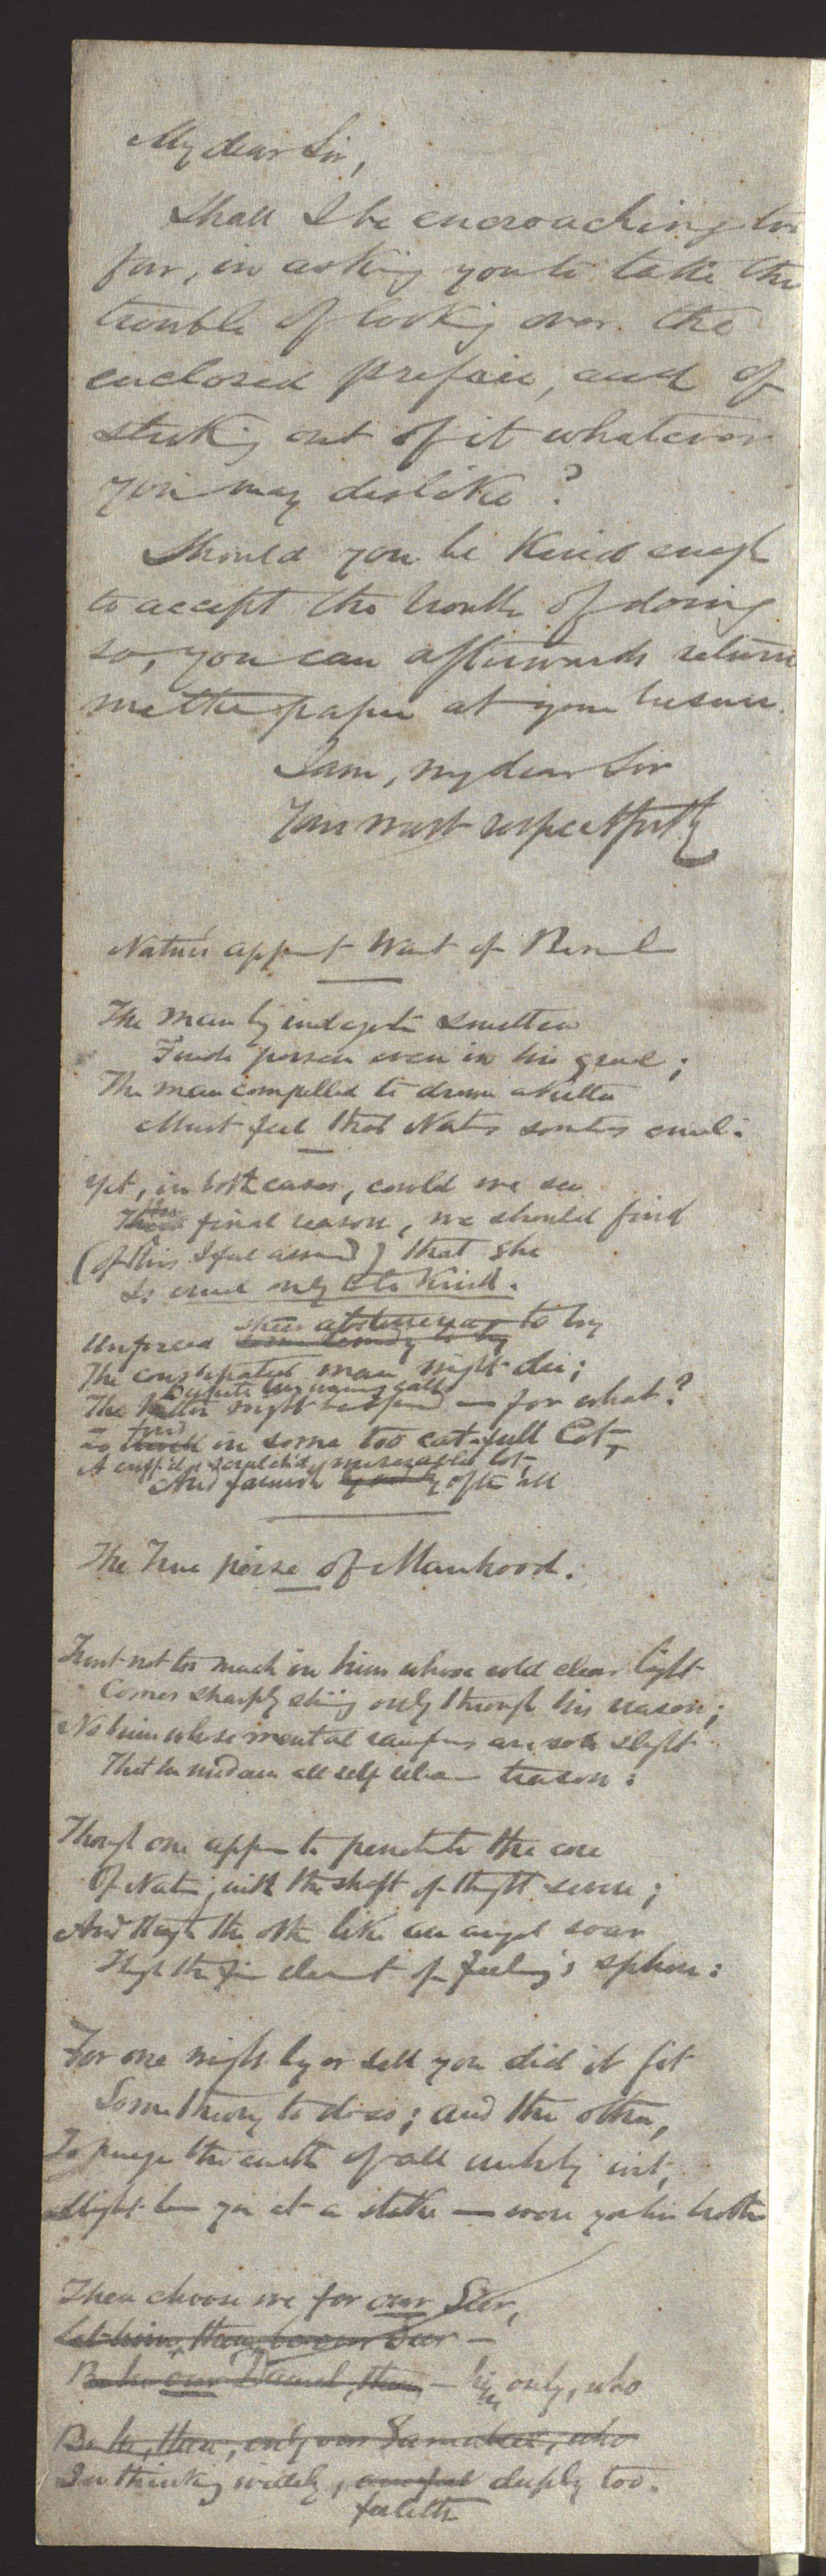 My dear Sir,
Shall I be encroaching too
far, in asking you to take the
trouble of looking over the
enclosed preface, and of
striking out of it whatever
you may dislike?
Should you be kind enough
to accept the trouble of doing
so, you can afterwards return
me the paper at your leisure.
I am, my dear Sir
Yours most respectfully
Nature's appt Want of
The man by smitten
Finds poison even in his gruel;
The man compelled to drown a kitten
Must feel that Nature cruel:
Yet, in both cases, could we see
The final reason, we should find
(Of this I feel assured) that she
Is cruel only to be kind.
Unforced to try
The constipated man might die;
The kitten might — for what?
To in some too cat-full Cot,
A cuff'd, scratch'd, miserable lot,
And famish after all
The True poise of Manhood.
Trust not too much in him whose cold clear light
Comes sharply only through his reason;
No him whose mental are so slight
That he all self treason:
Though one appear to penetrate the core
Of Nature, with the shaft of thought severe;
And though the other like an angel soar
High the element of feeling's sphere:
For one might buy or sell you did it fit
Some theory to do so; and the other,
To purge the earth of all writ,
Might burn you at a stake — were you his brother
Then choose we for our Seer,
Let him, then, be our Seer —
Be he our , then, — him only, who
Be he, then, only our , who
In thinking widely, deeply too.
feeleth